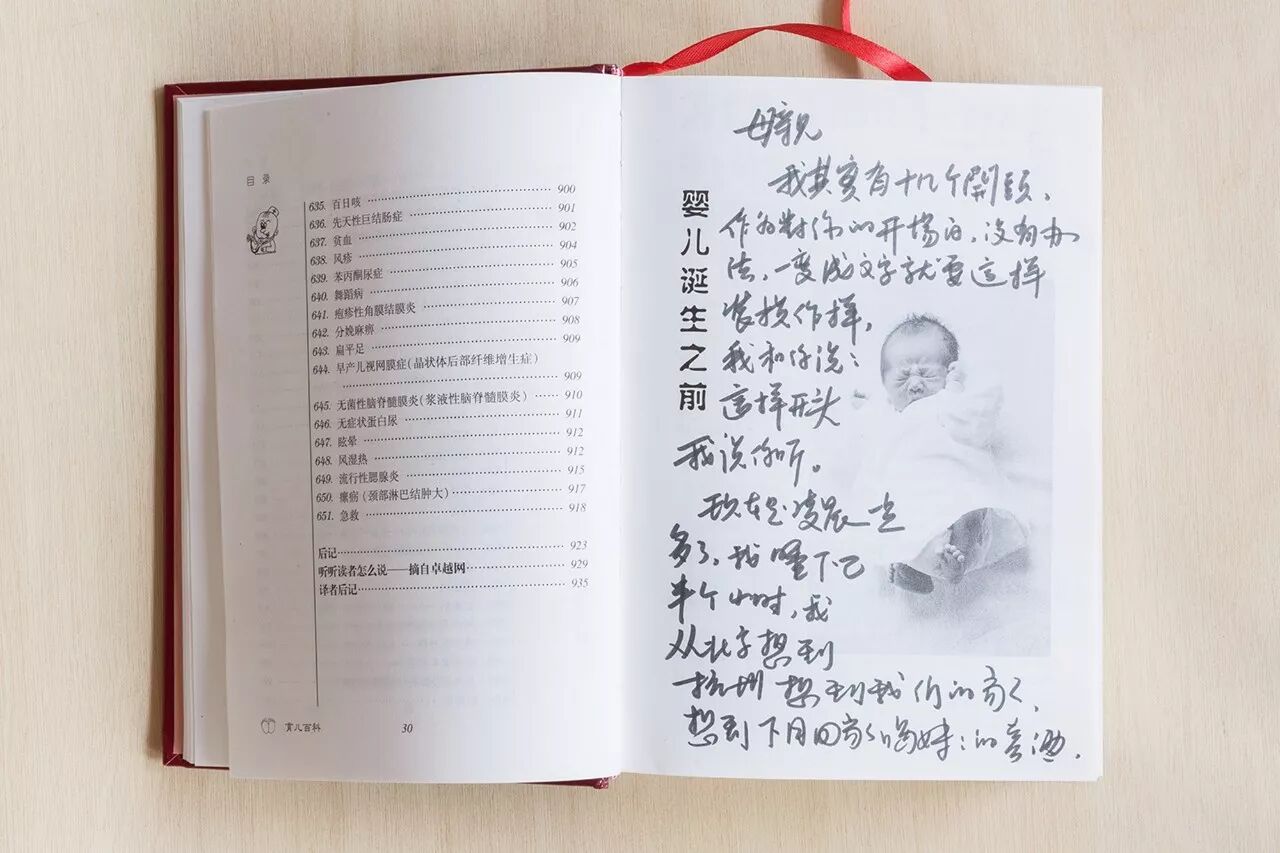 目录
635. 百日咳 900
636. 先天性巨结肠症 901
637. 贫血 902
638. 风疹 904
639. 苯丙酮尿症 905
640. 舞蹈病 906
641. 疱疹性角膜结膜炎 907
642. 分娩麻痹 908
643. 扁平足 909
644. 早产儿视网膜症(晶状体后部纤维增生症)
909
645. 无菌性脑脊髓膜炎(浆液性脑脊髓膜炎) 910
646. 无症状蛋白尿 911
647. 眩晕 912
648. 风湿热 912
649. 流行性腮腺炎 915
650. 瘰疬(颈部淋巴结肿大) 917
651. 急救 918
后记 923
听听读者怎么说——摘自卓越网 929
译者后记 935
育儿百科 30
婴儿诞生之前
母亲
我其实有十几个開頭,
作为對你的开场白,没有办
法,一变成文字就要这样
装模作样,
我和你说:
这样开头
我说你听。
现在是凌晨
多了,我
半个小时,我
从北京想到
杭州想到我们的家,
想到下月回家的